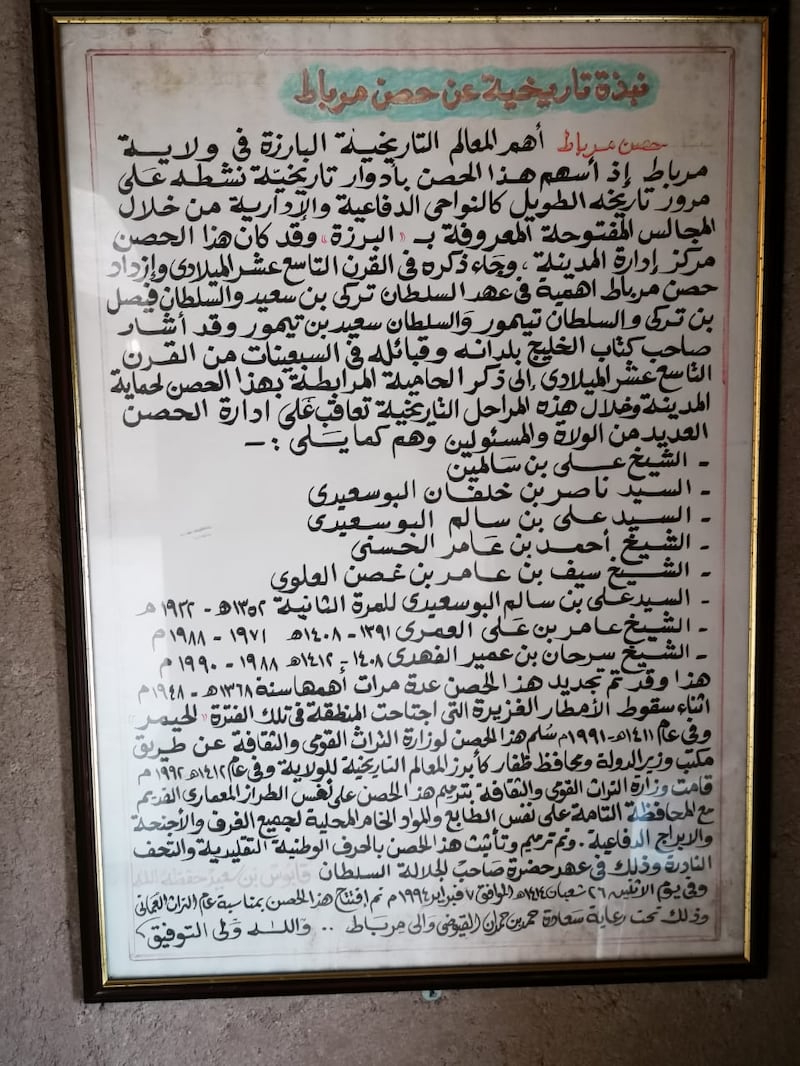 نبذة تاريخية عن حصن مرباط
حصن مرباط أهم المعالم التاريخية البارزة في ولاية
مرباط إذ أسهم هذا الحصن بأدوار تاريخية نشطه على
مرور تاريخه الطويل كالنواحي الدفاعية والإدارية من خلال
المجالس المفتوحة المعروفة بـ "البرزة" وقد كان هذا الحصن
مركز إدارة المدينة، وجاء ذكره في القرن التاسع عشر الميلادي وإزداد
حصن مرباط اهمية في عهد السلطان تركي بن سعيد والسلطان فيصل
بن تركي والسلطان تيمور والسلطان سعيد بن تيمور وقد أشار
صاحب كتاب الخليج بلدانه وقبائله في السبعينات من القرن
التاسع عشر الميلادي إلى ذكر الحامية المرابطة بهذا الحصن لحماية
المدينة وخلال هذه المراحل التاريخية تعاقب على ادارة الحصن
العديد من الولاة والمسئولين وهم كما يلى :-
- الشيخ على بن سالمين
- السيد ناصر بن خلفان البوسعيدي
- السيد على بن سالم البوسعيدي
- الشيخ أحمد بن عامر الحسنى
- الشيخ سيف بن عامر بن غصن العلوي
- السيد على بن سالم البوسعيدي للمرة الثانية ١٣٥٢هـ - ١٩٢٢م
- الشيخ عامر بن على العمرى ١٣٩١ - ١٤٠٨هـ ١٩٧١ - ١٩٨٨م
- الشيخ سرحان بن عمير الفهدى ١٤٠٨ - ١٤١٢هـ ١٩٨٨ - ١٩٩٠م
هذا وقد تم تجديد هذا الحصن عدة مرات أهمها سنة ١٣٦٨هـ - ١٩٤٨م
اثناء سقوط الأمطار الغزيرة التي اجتاحت المنطقة في تلك الفترة "لحيمر"
وفي عام ١٤١١هـ - ١٩٩١م سُلم هذا الحصن لوزارة التراث القومي والثقافة عن طريق
مكتب وزير الدولة ومحافظ ظفار كأبرز المعالم التاريخية للولاية وفي عام ١٤١٢هـ ١٩٩٢م
قامت وزارة التراث القومي والثقافة بترميم هذا الحصن على نفس الطراز المعماري القديم
مع المحافظة التامة على نفس الطابع والمواد الخام المحلية لجميع الغرف والأجنحة
والابراج الدفاعية. وتم ترميم وتأثيث هذا الحصن بالحرف الوطنية التقليدية والتحف
النادرة وذلك في عهد حضرة صاحب الجلالة السلطان قابوس بن سعيد حفظه الله
وفي يوم الاثنين ٢٦ شعبان ١٤١٤هـ الموافق ٧ فبراير ١٩٩٤م تم افتتاح هذا الحصن بمناسبة عام التراث العماني
وذلك تحت رعاية سعادة حمد بن حمدان الفيوضي والي مرباط .. والله ولي التوفيق